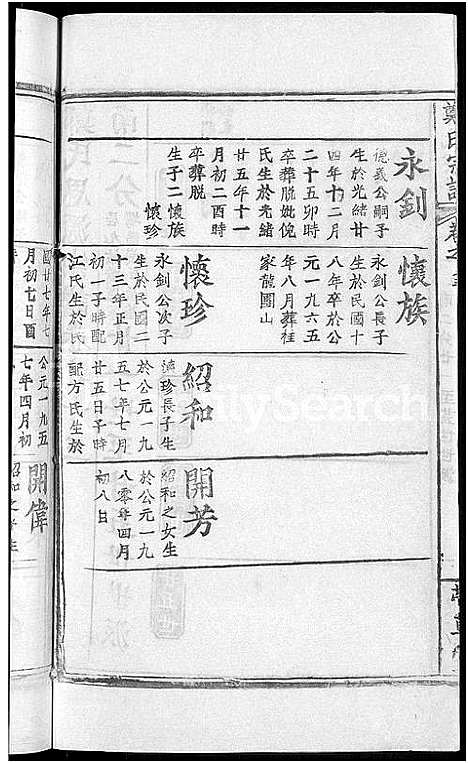 鄭氏宗譜
卷之
永釗
德義公嗣子
生於光緒廿
四年十二月
二十五卯時
卒葬脱妣傀
氏生於光緒
廿五年十一
月初二酉時
卒葬脱
生子二懷族
懷珍
懷族
永釗公長子
生於民國十
八年卒於公
元一九六五
年八月葬社
家龍園山
懷珍
永釗公次子
生於民國二
十三年正月
初一子時配
江氏生於民
國廿七年七
月初七日酉
紹和
懷珍長子生
於公元一九
五七年七月
廿五日子時
配方氏生於
公元一九五
七年四月初
開芳
紹和之女生
於公元一九
八零年四月
初八日
開偉
紹和之子生